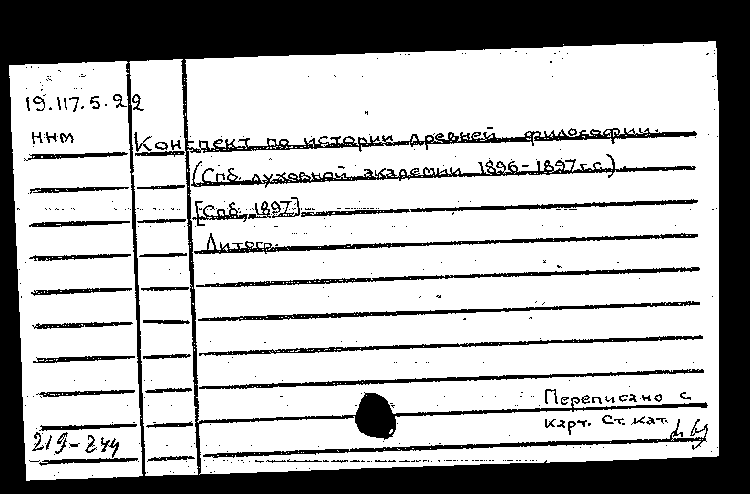 19.117.5.22
ННМ
Конспект по истории древней философии.
(Спб. духовной академии 1896-1897 г.с.).
[Спб., 1897].
Литогр.
Переписано с
карт. Ст. кат.
219-244